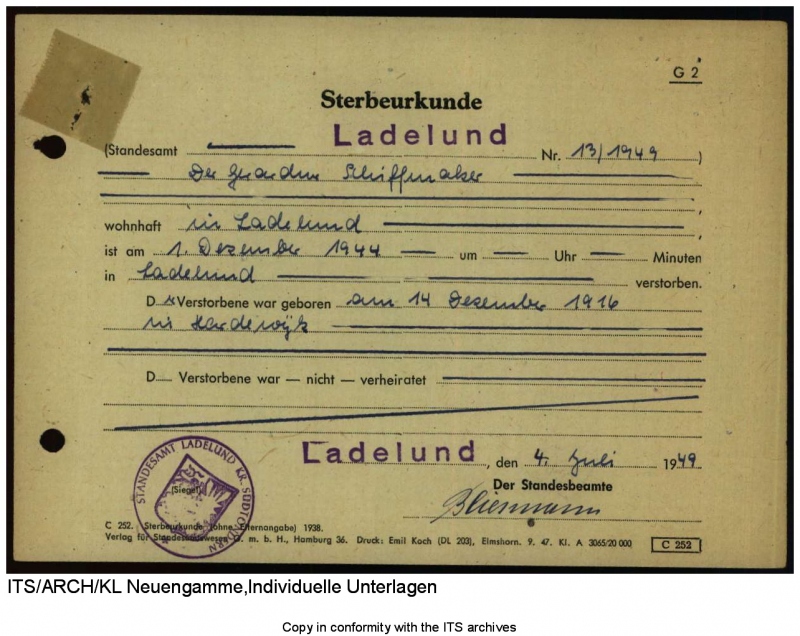 G 2
Sterbeurkunde
(Standesamt Ladelund Nr. 13/1949 )
Der Gerardus Schiffmaker
wohnhaft in Ladelund ,
ist am 1. Dezember 1944 um Uhr Minuten
in Ladelund verstorben.
D er Verstorbene war geboren am 14 Dezember 1916
in Harderwijk
D Verstorbene war — nicht — verheiratet
Ladelund , den 4. Juli 1949
(Siegel)
STANDESAMT LADELUND KR. SÜDTONDERN
Der Standesbeamte
C 252. Sterbeurkunde (ohne Elternangabe) 1938.
Verlag für Standesamtswesen G. m. b. H., Hamburg 36. Druck: Emil Koch (DL 203), Elmshorn. 9. 47. Kl. A 3065/20 000
C 252
ITS/ARCH/KL Neuengamme,Individuelle Unterlagen
Copy in conformity with the ITS archives